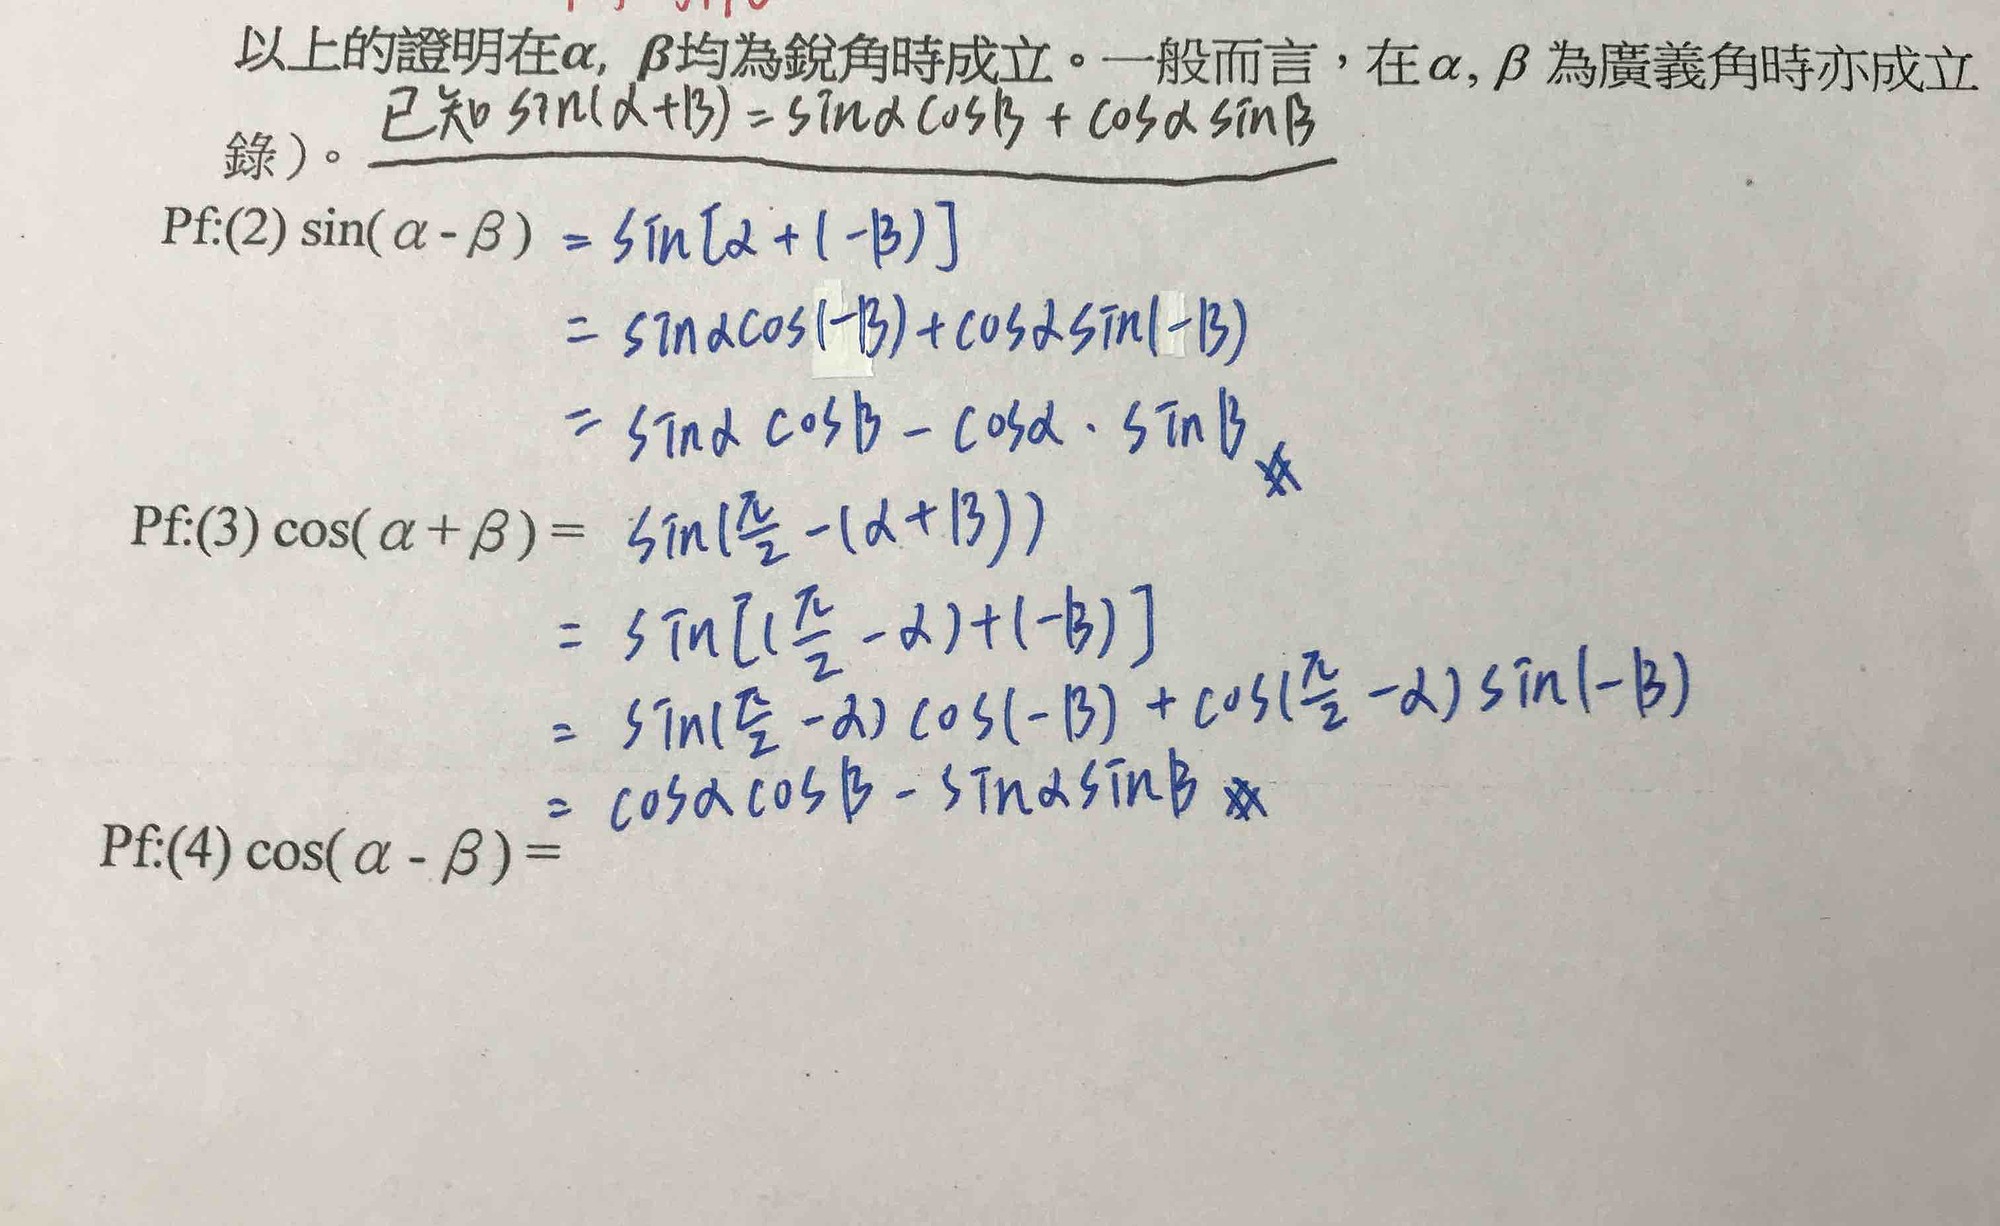 以上的證明在α, β均為銳角時成立。一般而言，在α, β 為廣義角時亦成立
錄)。 已知 sin(α+β) = sinα cosβ + cosα sinβ
Pf:(2) sin(α-β) = sin[α+(-β)]
= sinαcos(-β)+cosαsin(-β)
= sinα cosβ - cosα · sinβ
Pf:(3) cos(α+β) = sin(π/2 -(α+β))
= sin[(π/2 -α)+(-β)]
= sin(π/2 -α) cos(-β) + cos(π/2 -α) sin(-β)
= cosα cosβ - sinα sinβ
Pf:(4) cos(α-β) =